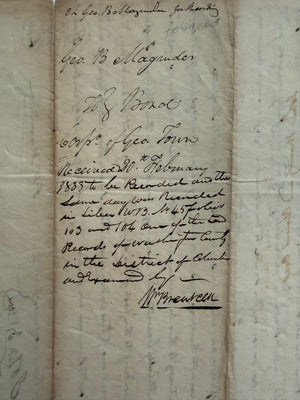 Ch Geo. B Magruder for Recording
Geo. B Magruder
To } Bond
Corp.n of Geo. Town
Received 20th February
1833 to be Recorded and the
Same day was Recorded
in Liber W B. No 45 folios
103 and 104 one of the Land
Records of Washington County
in the District of Columb
and Examined by
Wm Brent Clk